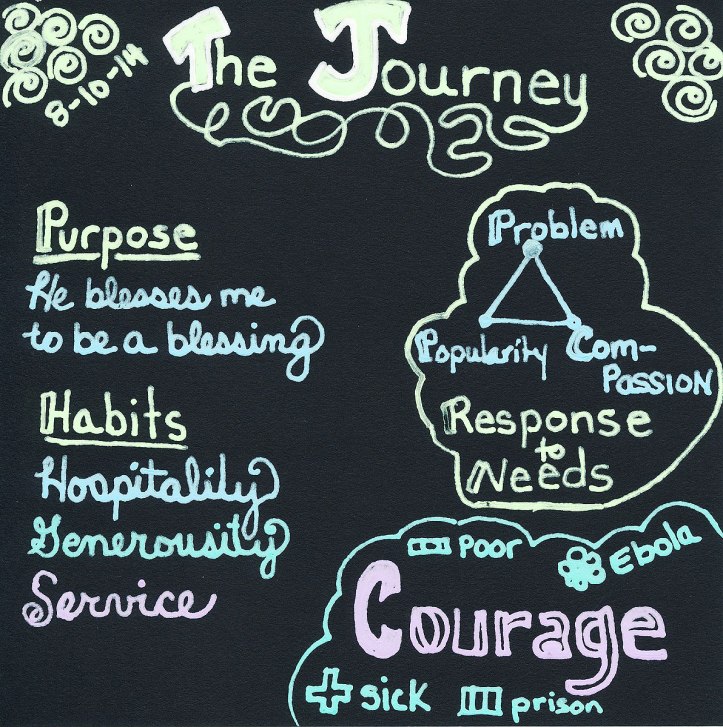 8-10-14
The Journey
Purpose
He blesses me
to be a blessing
Habits
Hospitality
Generousity
Service
Problem
Popularity
Com-
Passion
Response
to
Needs
Poor
Ebola
Courage
sick
prison